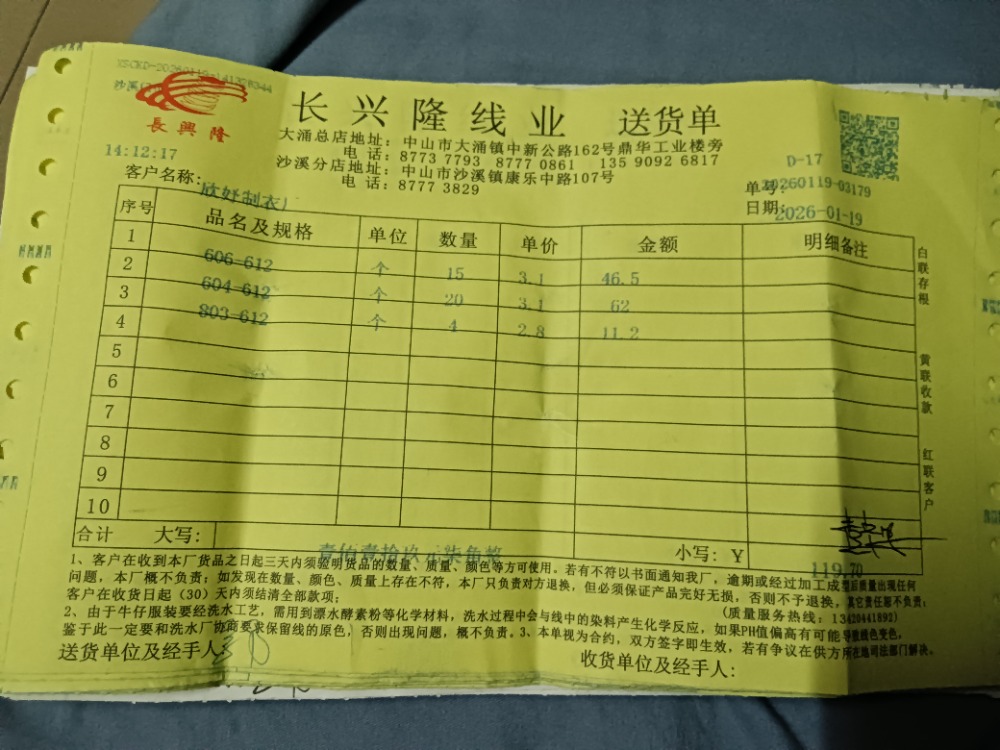 XSCKD-20260119-141328344
沙溪
長興隆
长兴隆线业 送货单
大涌总店地址：中山市大涌镇中新公路162号鼎华工业楼旁
电话：8773 7793 8777 0861 135 9092 6817
沙溪分店地址：中山市沙溪镇康乐中路107号
电话：8777 3829
14:12:17
D-17
客户名称：欣妤制衣厂
单号：20260119-03179
日期：2026-01-19
序号 品名及规格 单位 数量 单价 金额 明细备注
1 606-612 个 15 3.1 46.5
2 604-612 个 20 3.1 62
3 803-612 个 4 2.8 11.2
4
5
6
7
8
9
10
合计 大写：壹佰壹拾玖元柒角整 小写：Y 119.70
白联存根 黄联收款 红联客户
1、客户在收到本厂货品之日起三天内须验明货品的数量、质量、颜色等方可使用。若有不符以书面通知我厂，逾期或经过加工成型后质量出现任何
问题，本厂概不负责；如发现在数量、颜色、质量上存在不符，本厂只负责对方退换，但必须保证产品完好无损，否则不予退换，其它责任恕不负责；
客户在收货日起（30）天内须结清全部款项；
(质量服务热线：13420441892)
2、由于牛仔服装要经洗水工艺，需用到漂水酵素粉等化学材料，洗水过程中会与线中的染料产生化学反应，如果PH值偏高有可能导致线色变色，
鉴于此一定要和洗水厂协商要求保留线的原色，否则出现问题，概不负责。3、本单视为合约，双方签字即生效，若有争议在供方所在地司法部门解决。
送货单位及经手人：
收货单位及经手人：